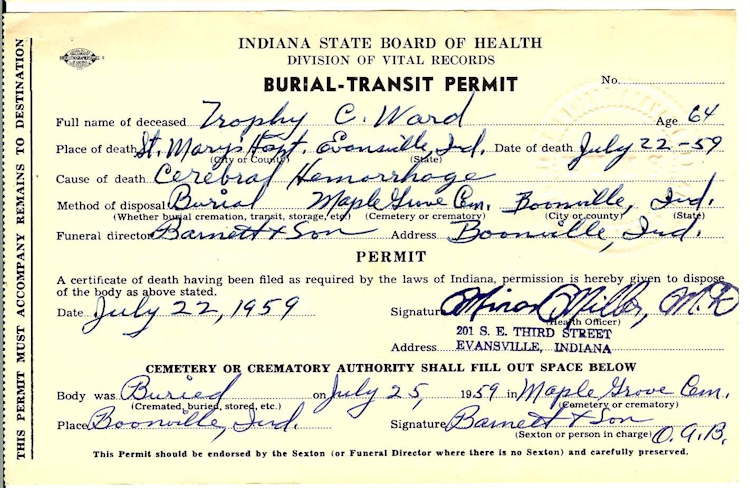 THIS PERMIT MUST ACCOMPANY REMAINS TO DESTINATION
INDIANA STATE BOARD OF HEALTH
DIVISION OF VITAL RECORDS
BURIAL-TRANSIT PERMIT No.
Full name of deceased Trophy C. Ward Age 64
Place of death St. Marys Hospt. Evansville, Ind. Date of death July 22-59
(City or County) (State)
Cause of death Cerebral Hemorrhage
Method of disposal Burial Maple Grove Cem. Boonville, Ind.
(Whether burial cremation, transit, storage, etc.) (Cemetery or crematory) (City or county) (State)
Funeral director Barnett & Son Address Boonville, Ind.
PERMIT
A certificate of death having been filed as required by the laws of Indiana, permission is hereby given to dispose
of the body as above stated.
Date July 22, 1959 Signature Minor Miller, M.D.
(Health Officer)
201 S. E. THIRD STREET
Address EVANSVILLE, INDIANA
CEMETERY OR CREMATORY AUTHORITY SHALL FILL OUT SPACE BELOW
Body was Buried on July 25, 1959 in Maple Grove Cem.
(Cremated, buried, stored, etc.) (Cemetery or crematory)
Place Boonville, Ind. Signature Barnett & Son
(Sexton or person in charge) O.A.B.
This Permit should be endorsed by the Sexton (or Funeral Director where there is no Sexton) and carefully preserved.